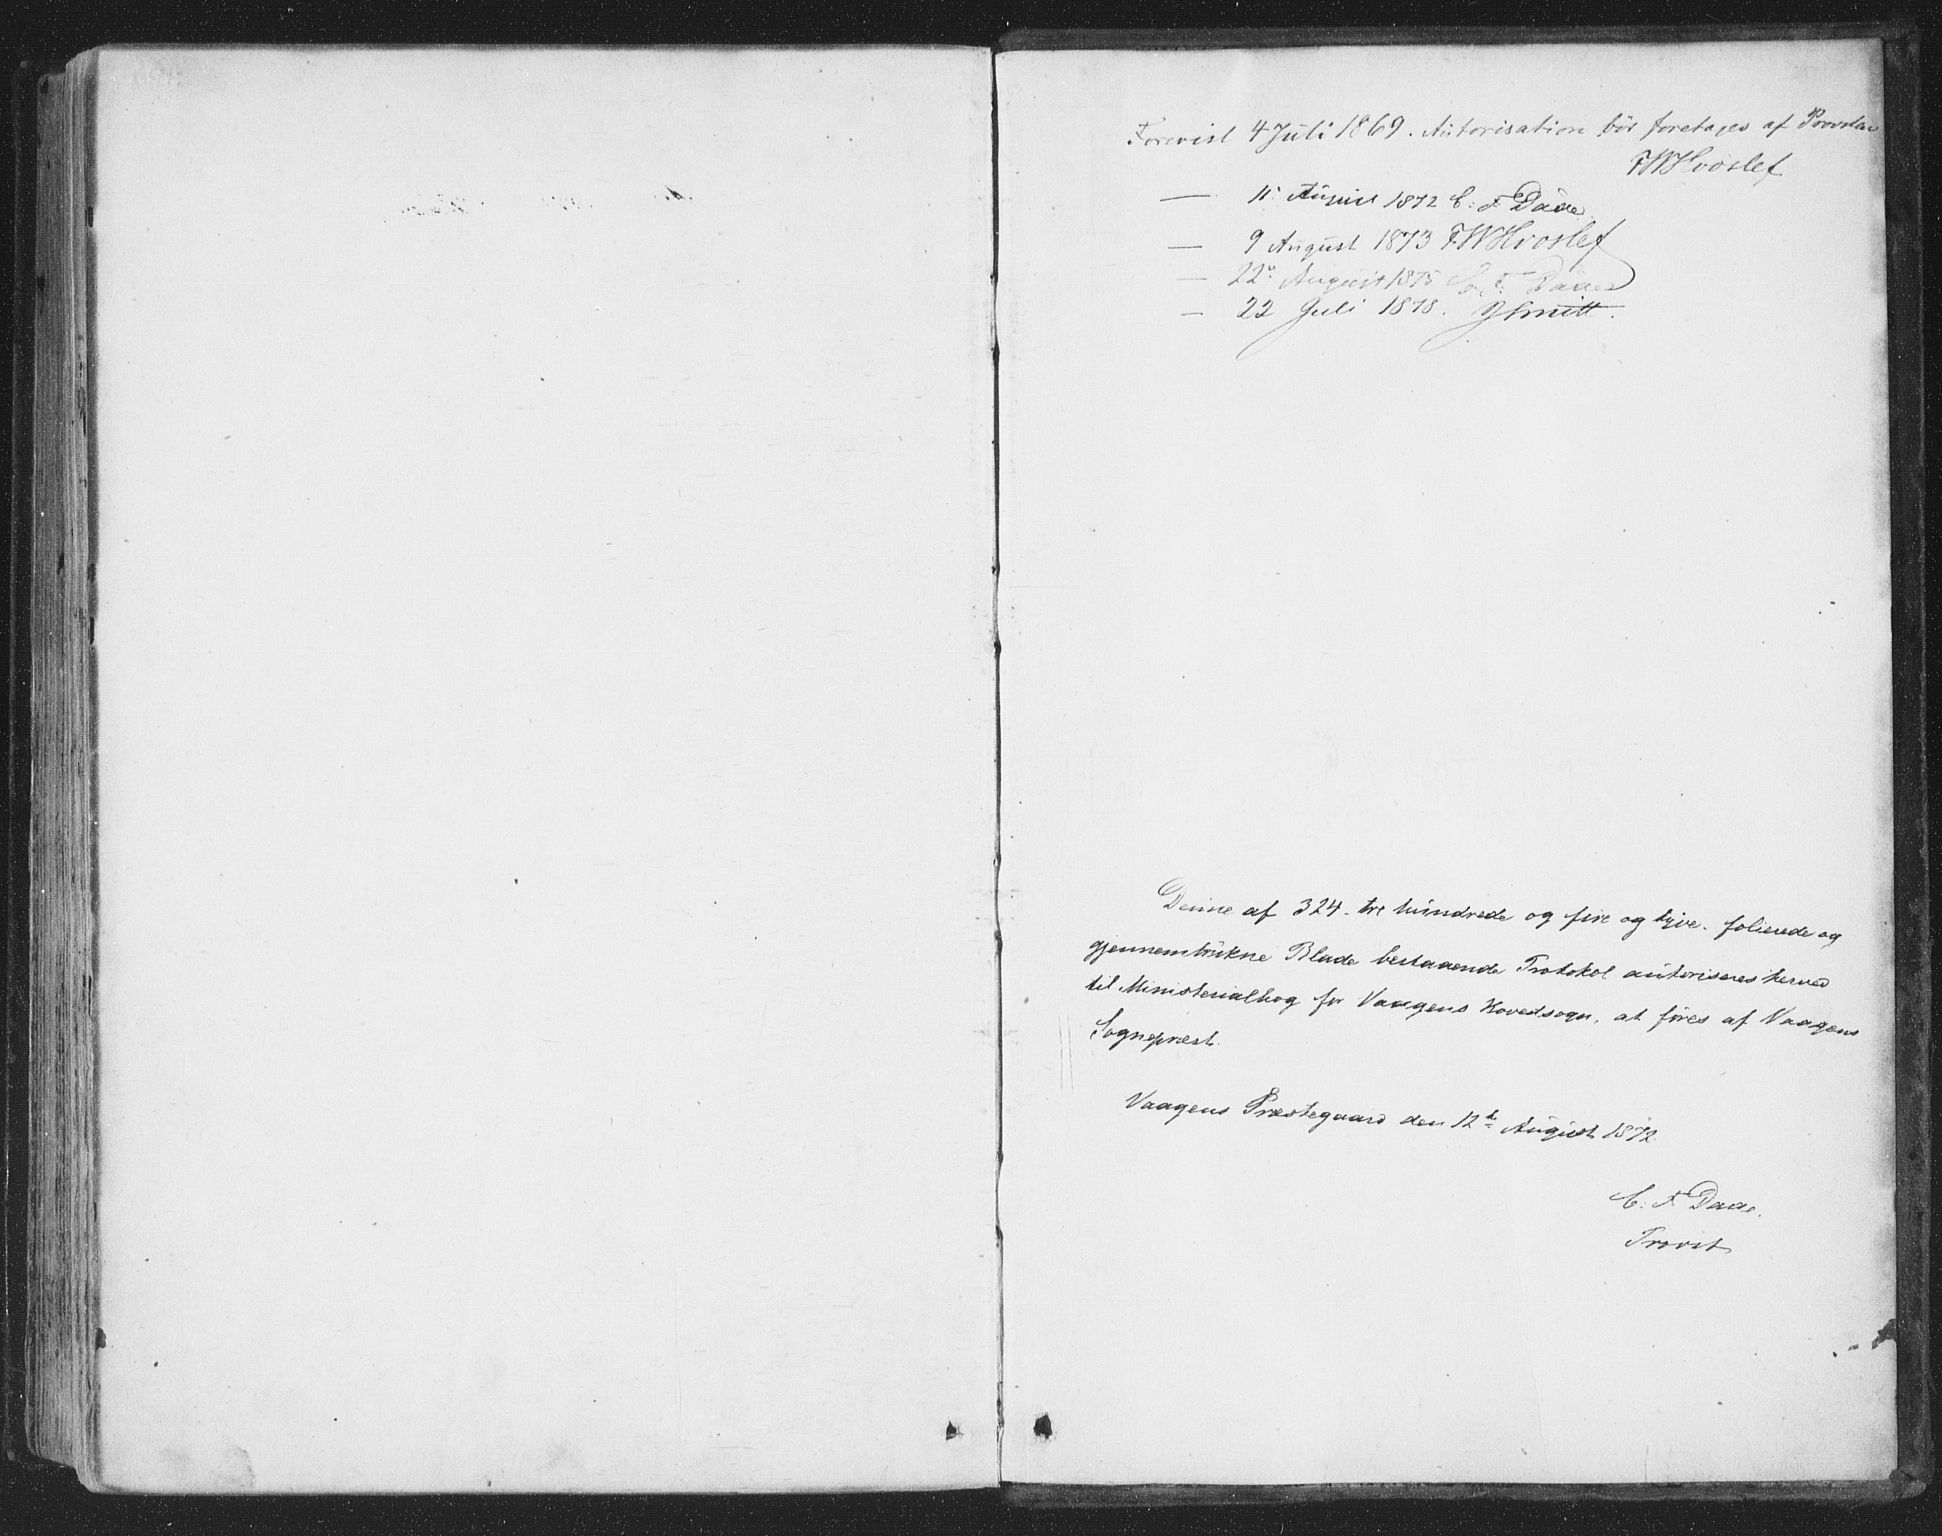 Forevist 4 Juli 1869. Autorisation bör foretages af Provsten
FWHvoslef
— 11 August 1872 C. F. Daae.
— 9 August 1873 FWHvoslef
— 22 August 1875 C. F. Daae
— 22 Juli 1878. JSmitt.
Denne af 324 - tre hundrede og fire og tyve - folierede og
gjennemtrukne Blade bestaaende Protokol autoriseres herved
til Ministerialbog for Vaagens Hovedsogn, at föres af Vaagens
Sognepræst.
Vaagens Præstegaard den 12te August 1872
C. F. Daae.
Provst